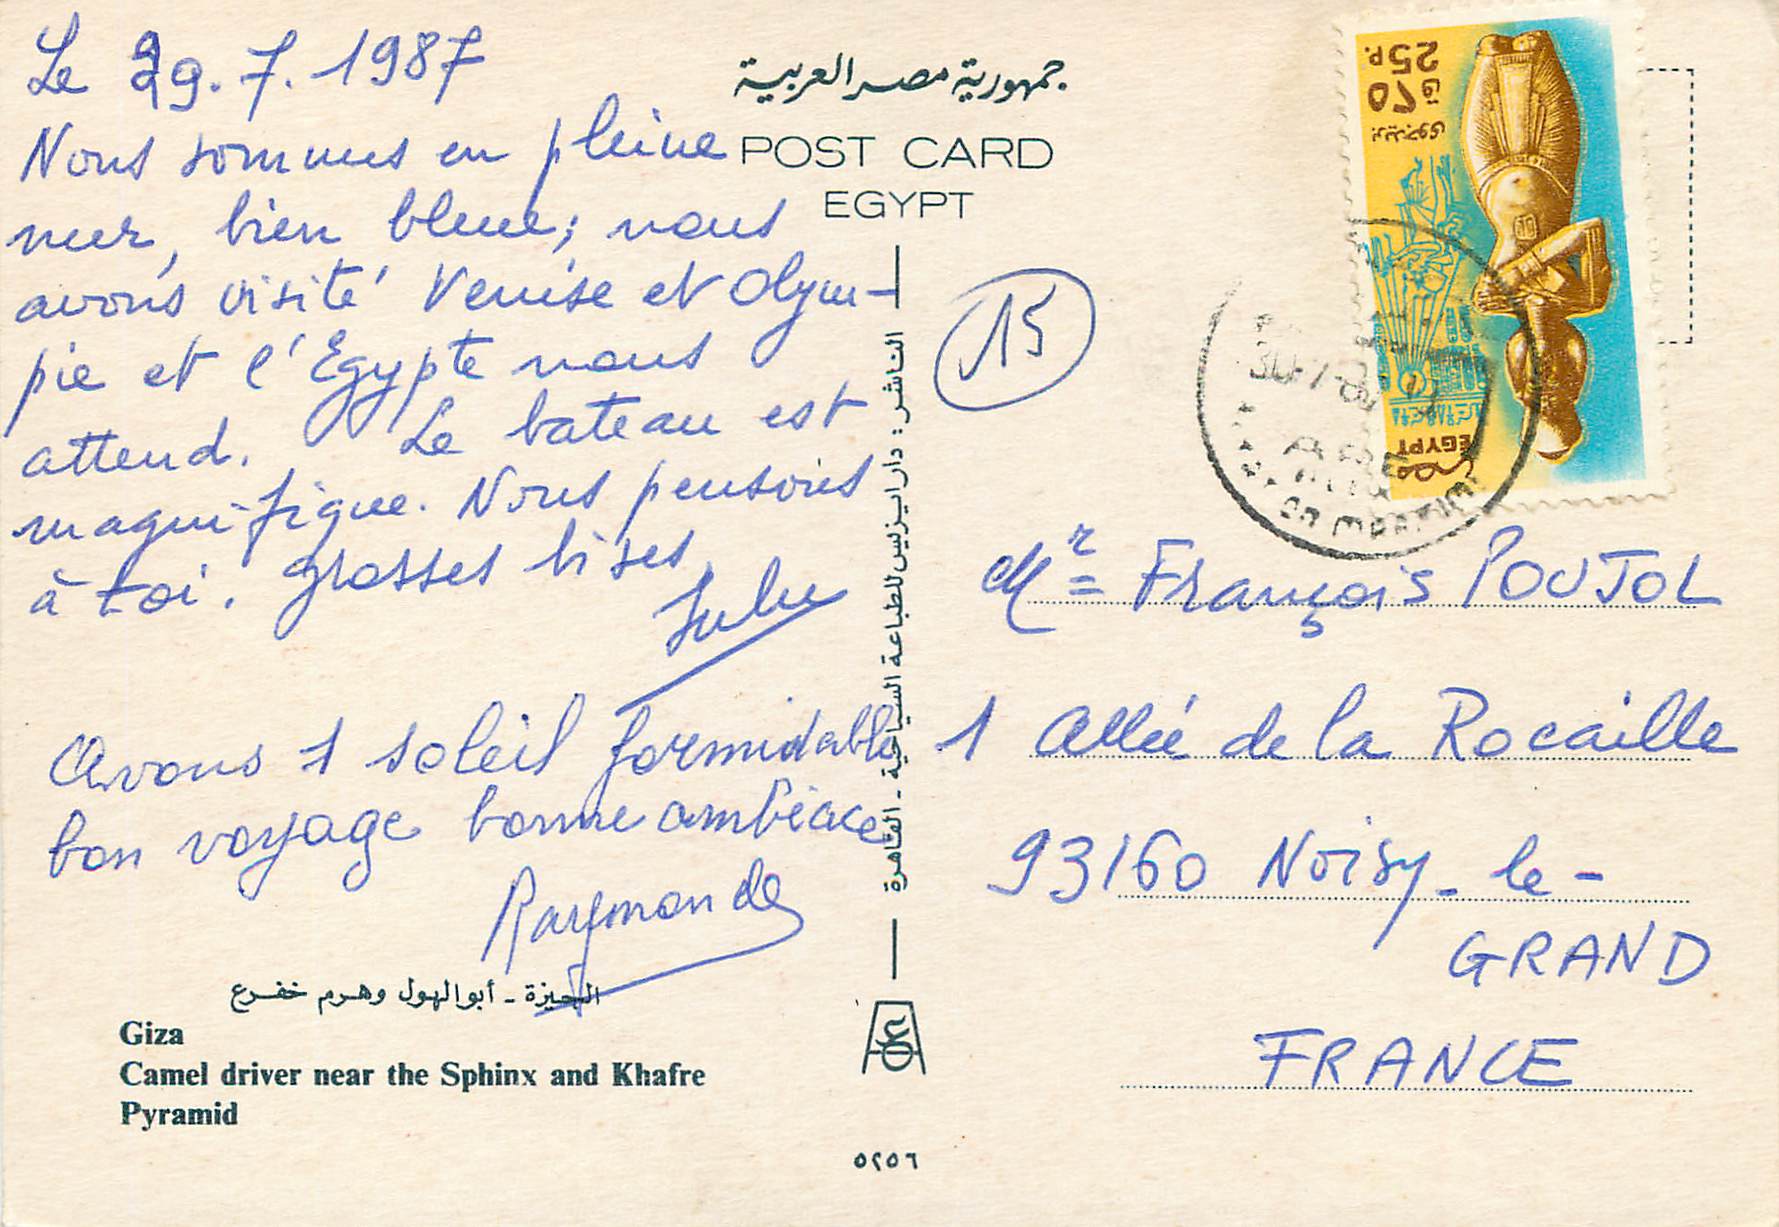 Le 29.7.1987
Nous sommes en pleine
mer, bien bleue; nous
avons visité Venise et Olym-
pie et l'Egypte nous
attend. Le bateau est
magnifique. Nous pensons
à toi. Grosses bises
Avons 1 soleil formidable
bon voyage bonne ambiace
Raymonde
الجيزة - أبو الهول وهرم خفرع
Giza
Camel driver near the Sphinx and Khafre
Pyramid
جمهورية مصر العربية
POST CARD
EGYPT
الناشر: دار ايزيس للطباعة السياحية - القاهرة
٥٢٥٦
15
25 P.
٢٥ ق
بريد جوى
EGYPT
مصر
30-7-8
Mr François POUJOL
1 allée de la Rocaille
93160 Noisy-le-
GRAND
FRANCE